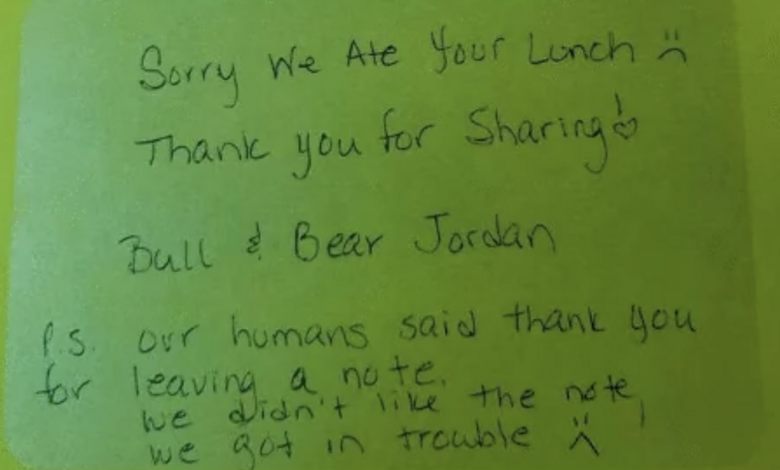 Sorry We Ate Your Lunch :(
Thank you for Sharing!
Bull & Bear Jordan
P.S. our humans said thank you
for leaving a note.
we didn't like the note,
we got in trouble :(